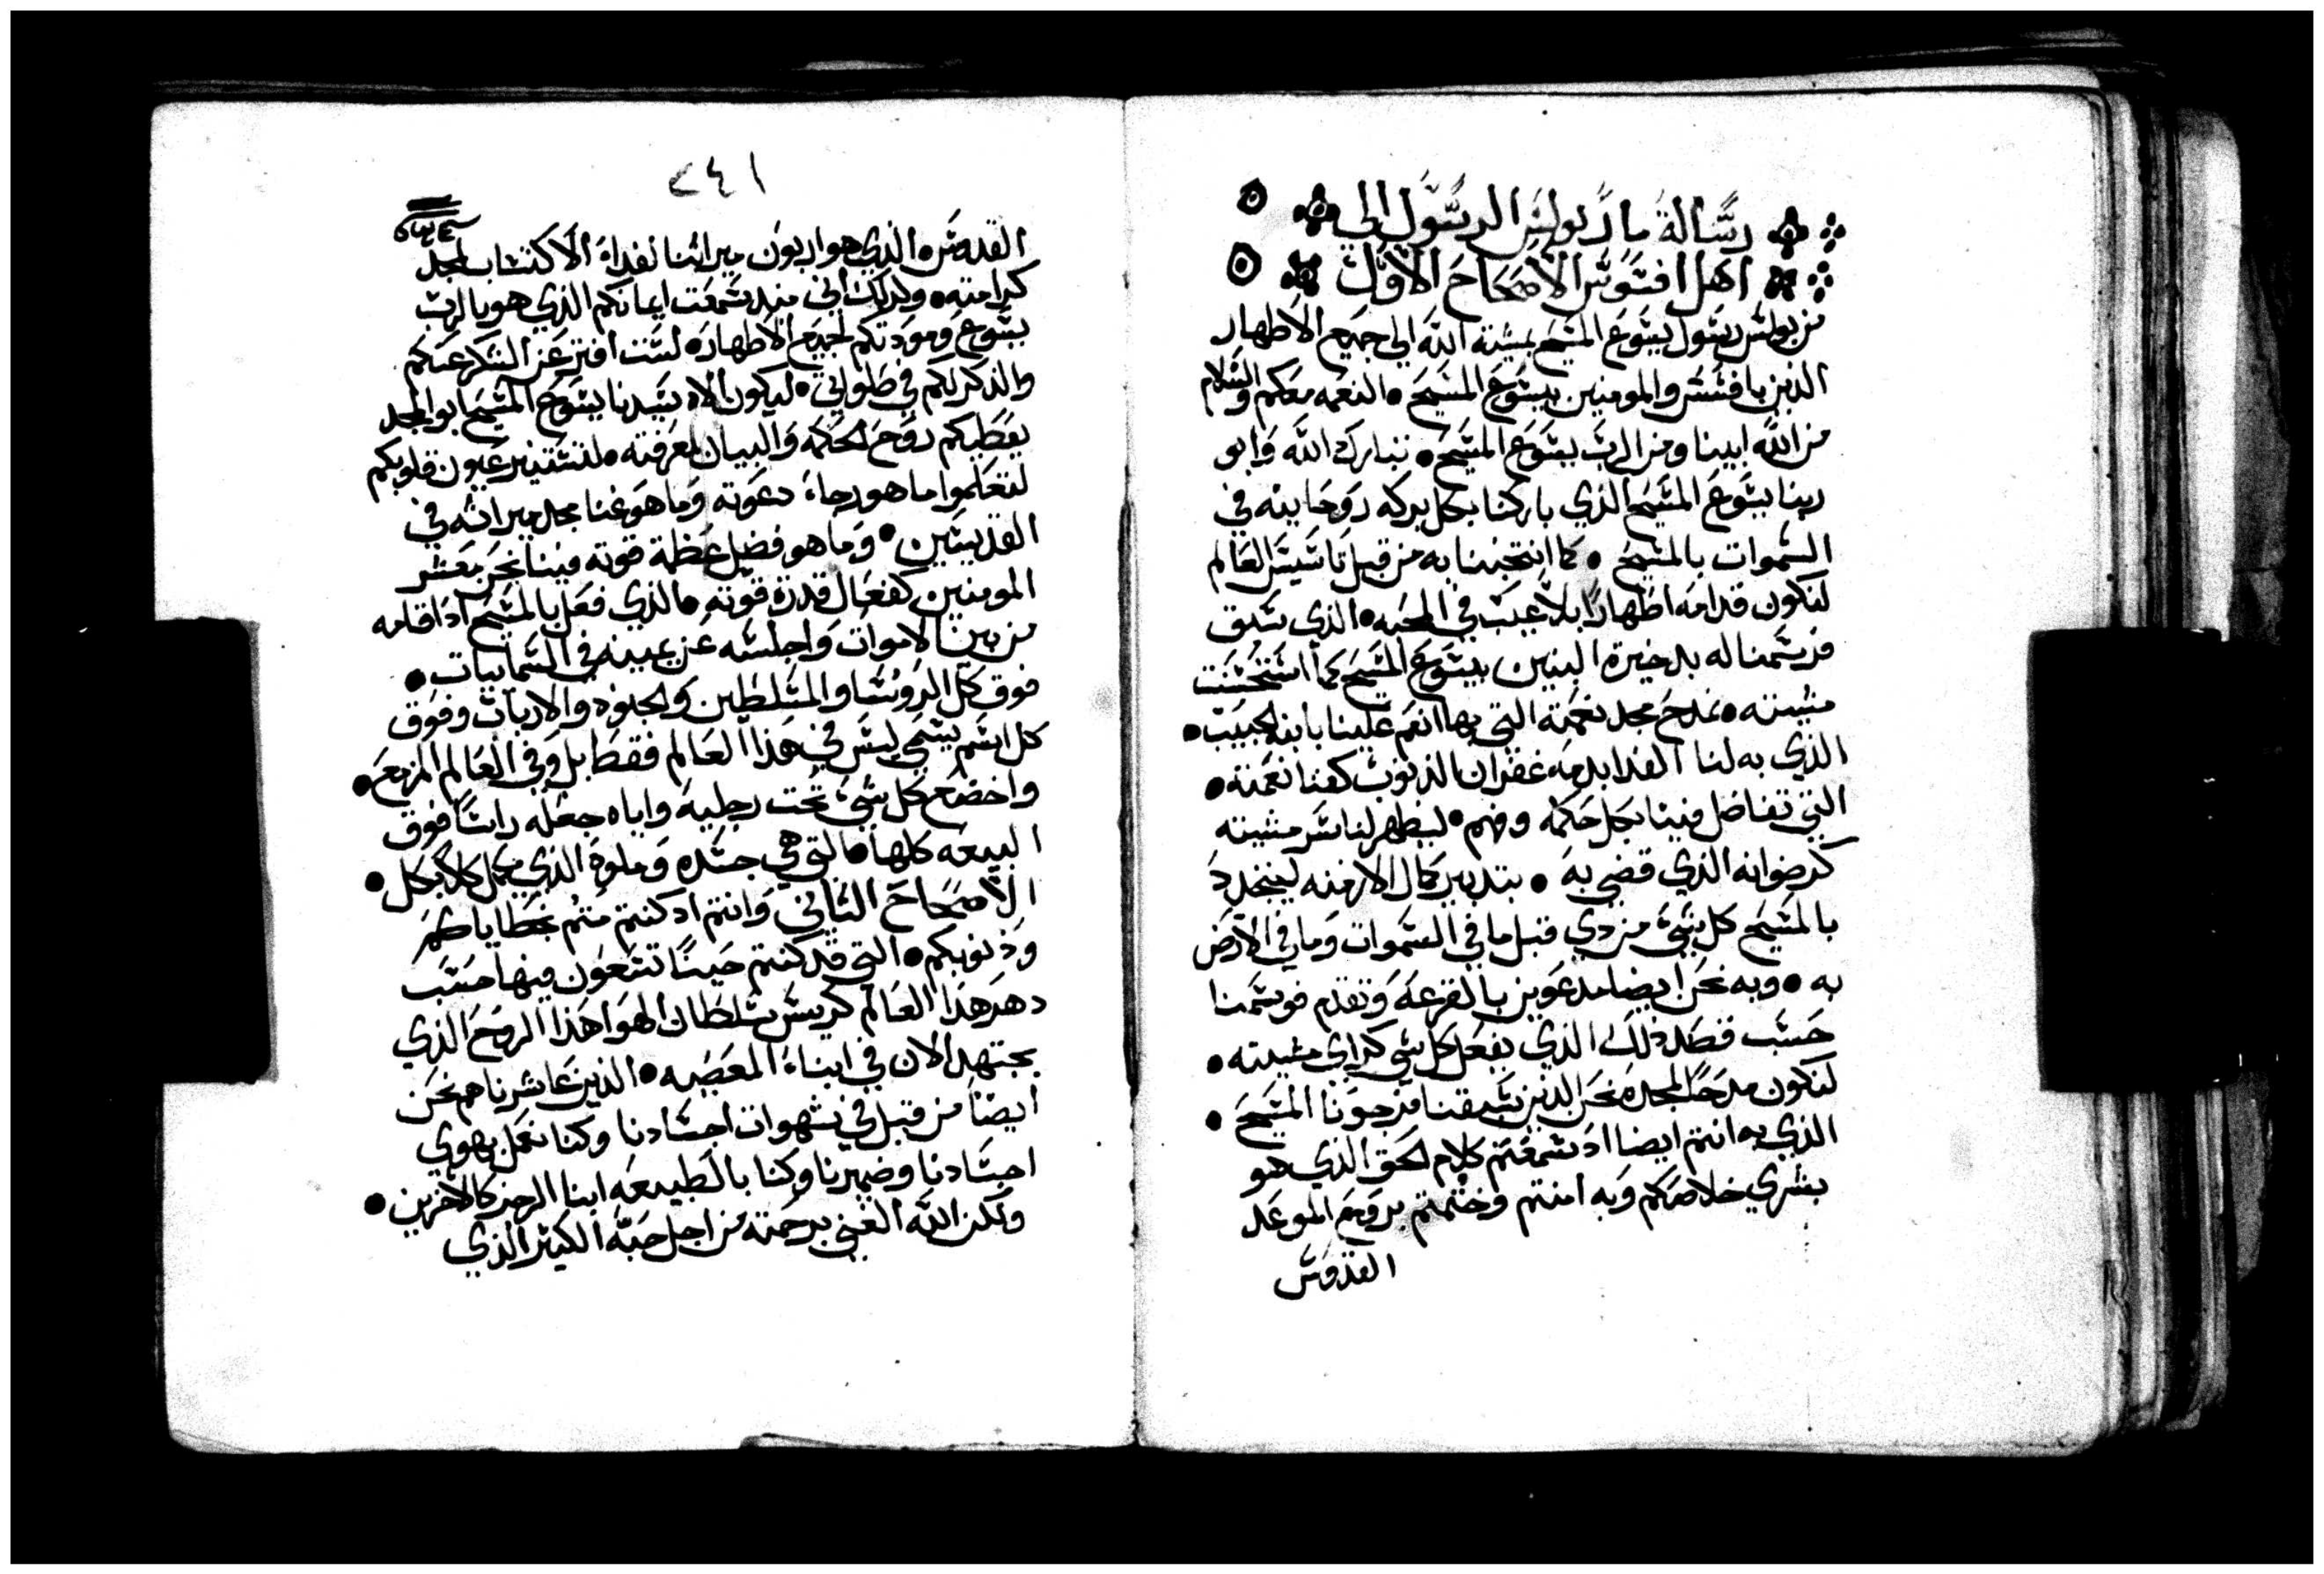 رسالة مار بولس الرسول الي
اهل افسوس الاصحاح الاول
من بولس رسول يسوع المسيح بمشية الله الي جميع الاطهار
الذين بافسس والمومنين بيسوع المسيح • النعمه معكم والسلام
من الله ابينا ومن الرب يسوع المسيح • تبارك الله وابو
ربنا يسوع المسيح الذي باركنا بكل بركه روحانيه في
السموات بالمسيح • كما انتخبنا به من قبل تاسيس العالم
لنكون قدامه اطهارا بلا عيب في المحبه • الذي سبق
فرسمنا له بدخيرة البنين بيسوع المسيح كما استحسنت
مشيته • نمدح مجد نعمته التي بها انعم علينا بابنه الحبيب •
الذي به لنا الفدا بدمه غفران الذنوب كغنا نعمته •
التي تفاضل فينا بكل حكمه وفهم • ليظهر لنا سر مشيته
كرضوانه الذي قضي به • بتدبير كمال الازمنه ليتجدد
بالمسيح كل شي من دي قبل ما في السموات وما في الارض
به • وبه نحن ايضا مدعوين بالقرعه وتقدم فوسمنا
حسب قصد ذلك الذي يفعل كل شي كراي مشيته •
لنكون مدحا لمجده نحن الذين سبقنا فرجونا المسيح •
الذي به انتم ايضا اد سمعتم كلام الحق الذي هو
بشري خلاصكم وبه امنتم وختمتم بروح الموعد
القدوس
٢٤١
القدوس • الذي هو اربون ميراثنا لفداء الاكتساب لمجد
كرامته • ولدلك اني منذ سمعت ايمانكم الذي هو بالرب
يسوع ومودتكم لجميع الاطهار • لست افتر عن الشكر عنكم
والذكر لكم في صلواتي • ليكون الاه سيدنا يسوع المسيح ابو المجد
يعطيكم روح الحكمه والبيان لمعرفته • لتستنير عيون قلوبكم
لتعلموا ما هو رجاء دعوته وما هو غنا مجد ميراثه في
القديسين • وما هو فضل عظمة قوته فينا نحن معشر
المومنين كفعال قدرة قوته • الذي فعل بالمسيح اد اقامه
من بين الاموات واجلسه عن يمينه في السماييات •
فوق كل الروسا والمسلطين والجنود والارباب وفوق
كل اسم يسمي ليس في هذا العالم فقط بل وفي العالم المزمع •
واخضع كل شي تحت رجليه واياه جعله راسا فوق
البيعه كلها • التي هي جسده وملوه الذي يكمل كلا بكل •
الاصحاح الثاني وانتم اد كنتم متم بخطاياكم
وذنوبكم • التي قد كنتم حينا تسعون فيها حسب
دهر هذا العالم كرييس سلطان الهوا هذا الروح الذي
يجتهد الان في ابناء المعصيه • الذين عاشرناهم نحن
ايضا من قبل في شهوات اجسادنا وكنا نعمل بهوي
اجسادنا وضميرنا وكنا بالطبيعه ابنا الرجز كالاخرين •
ولكن الله الغني برحمته من اجل حبه الكثير الذي